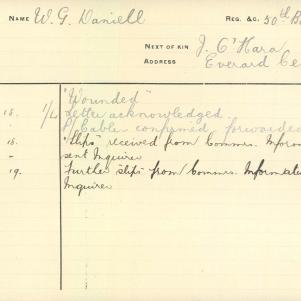 NAME W. G. Daniell REG. &C. 50th B
NEXT OF KIN J. O'Hara
ADDRESS Everard Ce
"Wounded"
18. 1/4 Letter acknowledged
Cable confirmed forwarded
18. "Slips" received from Commrs. Inform
- sent Inquirer
19. Further slips from Commrs. Informati
Inquirer